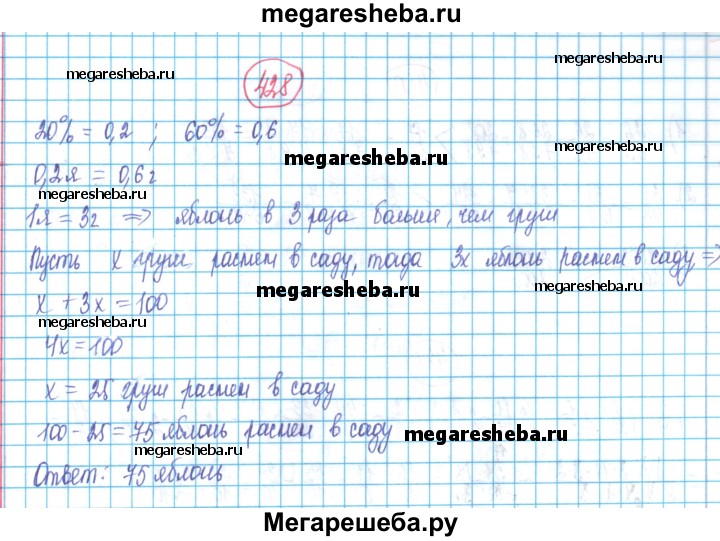 megaresheba.ru
megaresheba.ru
megaresheba.ru
428
20% = 0,2 ; 60% = 0,6
megaresheba.ru
megaresheba.ru
0,2я = 0,6г
megaresheba.ru
1я = 3г => яблонь в 3 раза больше, чем груш
Пусть x груш растет в саду, тогда 3x яблонь растет в саду =>
megaresheba.ru
megaresheba.ru
x + 3x = 100
megaresheba.ru
4x = 100
x = 25 груш растет в саду
100 - 25 = 75 яблонь растет в саду
megaresheba.ru
megaresheba.ru
Ответ: 75 яблонь
Мегарешеба.ру